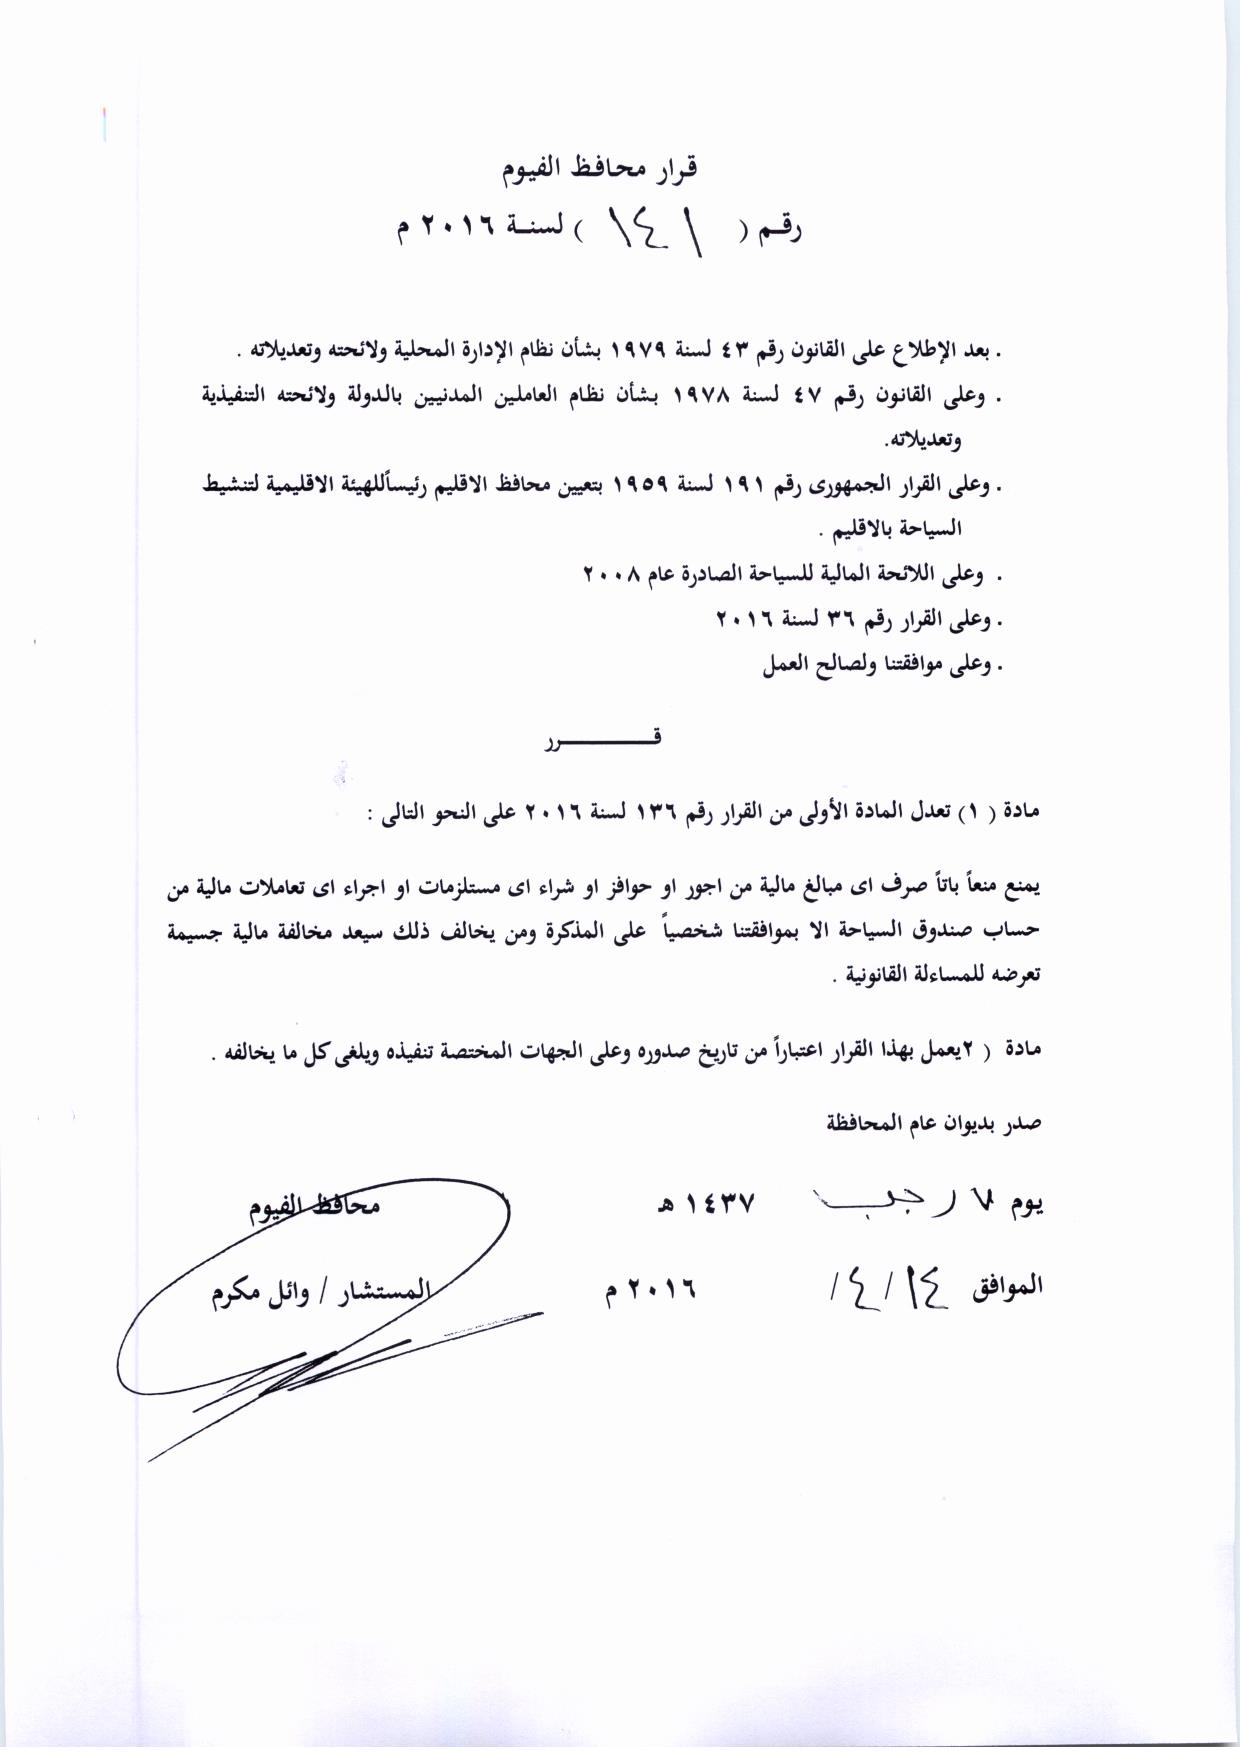 قرار محافظ الفيوم
رقم ( ١٤١ ) لسنة ٢٠١٦ م
. بعد الإطلاع على القانون رقم ٤٣ لسنة ١٩٧٩ بشأن نظام الإدارة المحلية ولائحته وتعديلاته .
. وعلى القانون رقم ٤٧ لسنة ١٩٧٨ بشأن نظام العاملين المدنيين بالدولة ولائحته التنفيذية
وتعديلاته.
. وعلى القرار الجمهورى رقم ١٩١ لسنة ١٩٥٩ بتعيين محافظ الاقليم رئيساًللهيئة الاقليمية لتنشيط
السياحة بالاقليم .
. وعلى اللائحة المالية للسياحة الصادرة عام ٢٠٠٨
. وعلى القرار رقم ٣٦ لسنة ٢٠١٦
. وعلى موافقتنا ولصالح العمل
قـــــــــرر
مادة ( ١) تعدل المادة الأولى من القرار رقم ١٣٦ لسنة ٢٠١٦ على النحو التالى :
يمنع منعاً باتاً صرف اى مبالغ مالية من اجور او حوافز او شراء اى مستلزمات او اجراء اى تعاملات مالية من
حساب صندوق السياحة الا بموافقتنا شخصياً على المذكرة ومن يخالف ذلك سيعد مخالفة مالية جسيمة
تعرضه للمساءلة القانونية .
مادة ( ٢يعمل بهذا القرار اعتباراً من تاريخ صدوره وعلى الجهات المختصة تنفيذه ويلغى كل ما يخالفه .
صدر بديوان عام المحافظة
يوم ٧ رجب ١٤٣٧ هـ
محافظ الفيوم
الموافق ١٤ / ٤ / ٢٠١٦ م
المستشار / وائل مكرم